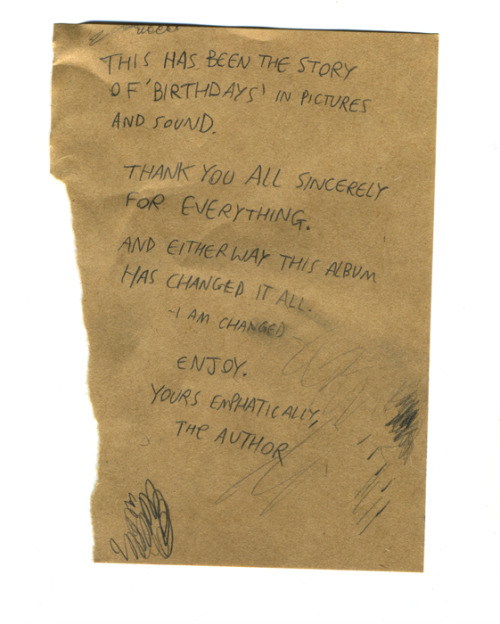 THIS HAS BEEN THE STORY
OF 'BIRTHDAYS' IN PICTURES
AND SOUND.
THANK YOU ALL SINCERELY
FOR EVERYTHING.
AND EITHER WAY THIS ALBUM
HAS CHANGED IT ALL.
-I AM CHANGED
ENJOY.
YOURS EMPHATICALLY,
THE AUTHOR